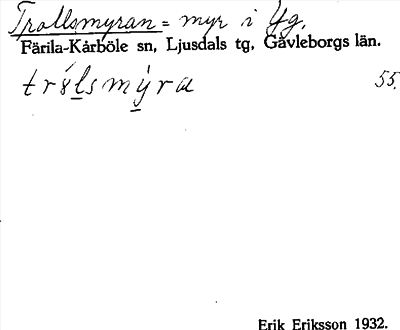 Trollsmyran = myr i Yg.
Färila-Kårböle sn, Ljusdals tg, Gävleborgs län.
55.
Erik Eriksson 1932.